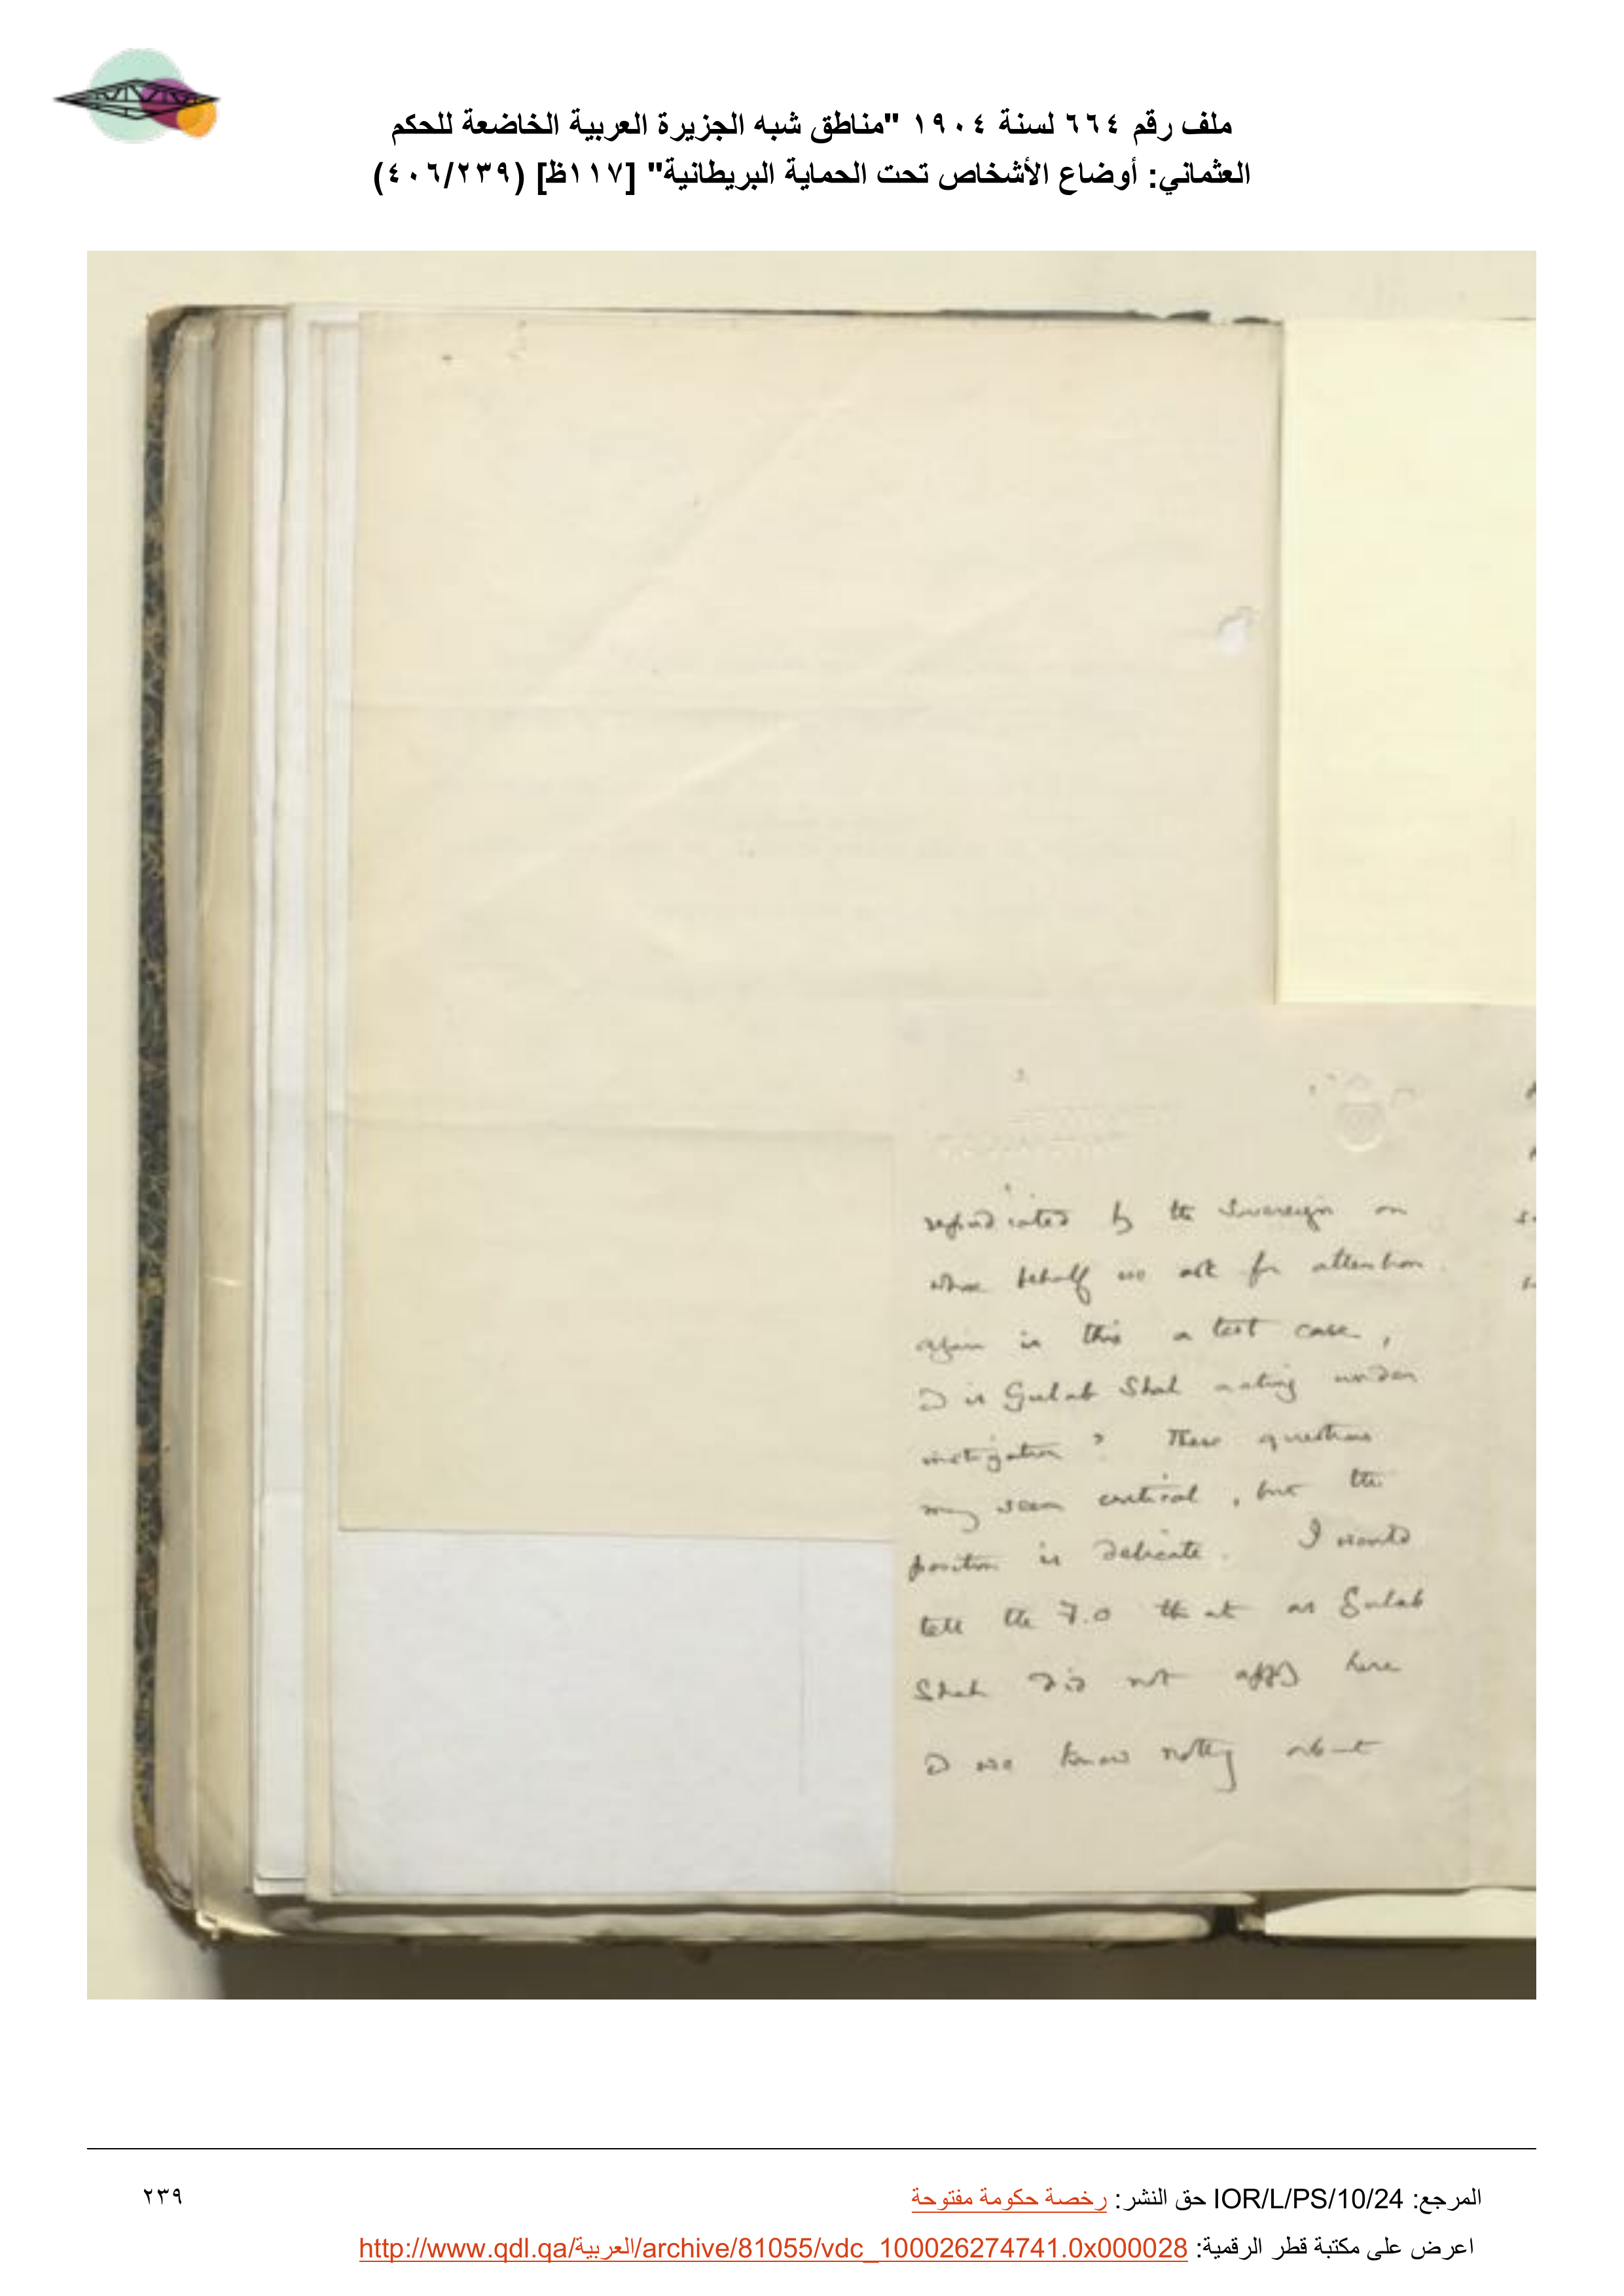 ملف رقم ٦٦٤ لسنة ١٩٠٤ "مناطق شبه الجزيرة العربية الخاضعة للحكم
العثماني: أوضاع الأشخاص تحت الحماية البريطانية" [١١٧ظ] (٤٠٦/٢٣٩)
2
repudiated by the Sovereign on
whose behalf we ask for attention.
again is this a test case,
& is Gulab Shah acting under
instigation? These questions
may seem critical, but the
position is delicate. I would
tell the F.O that as Gulab
Shah did not apply here
& we know nothing about
المرجع: IOR/L/PS/10/24 حق النشر: رخصة حكومة مفتوحة
٢٣٩
اعرض على مكتبة قطر الرقمية: http://www.qdl.qa/العربية/archive/81055/vdc_100026274741.0x000028